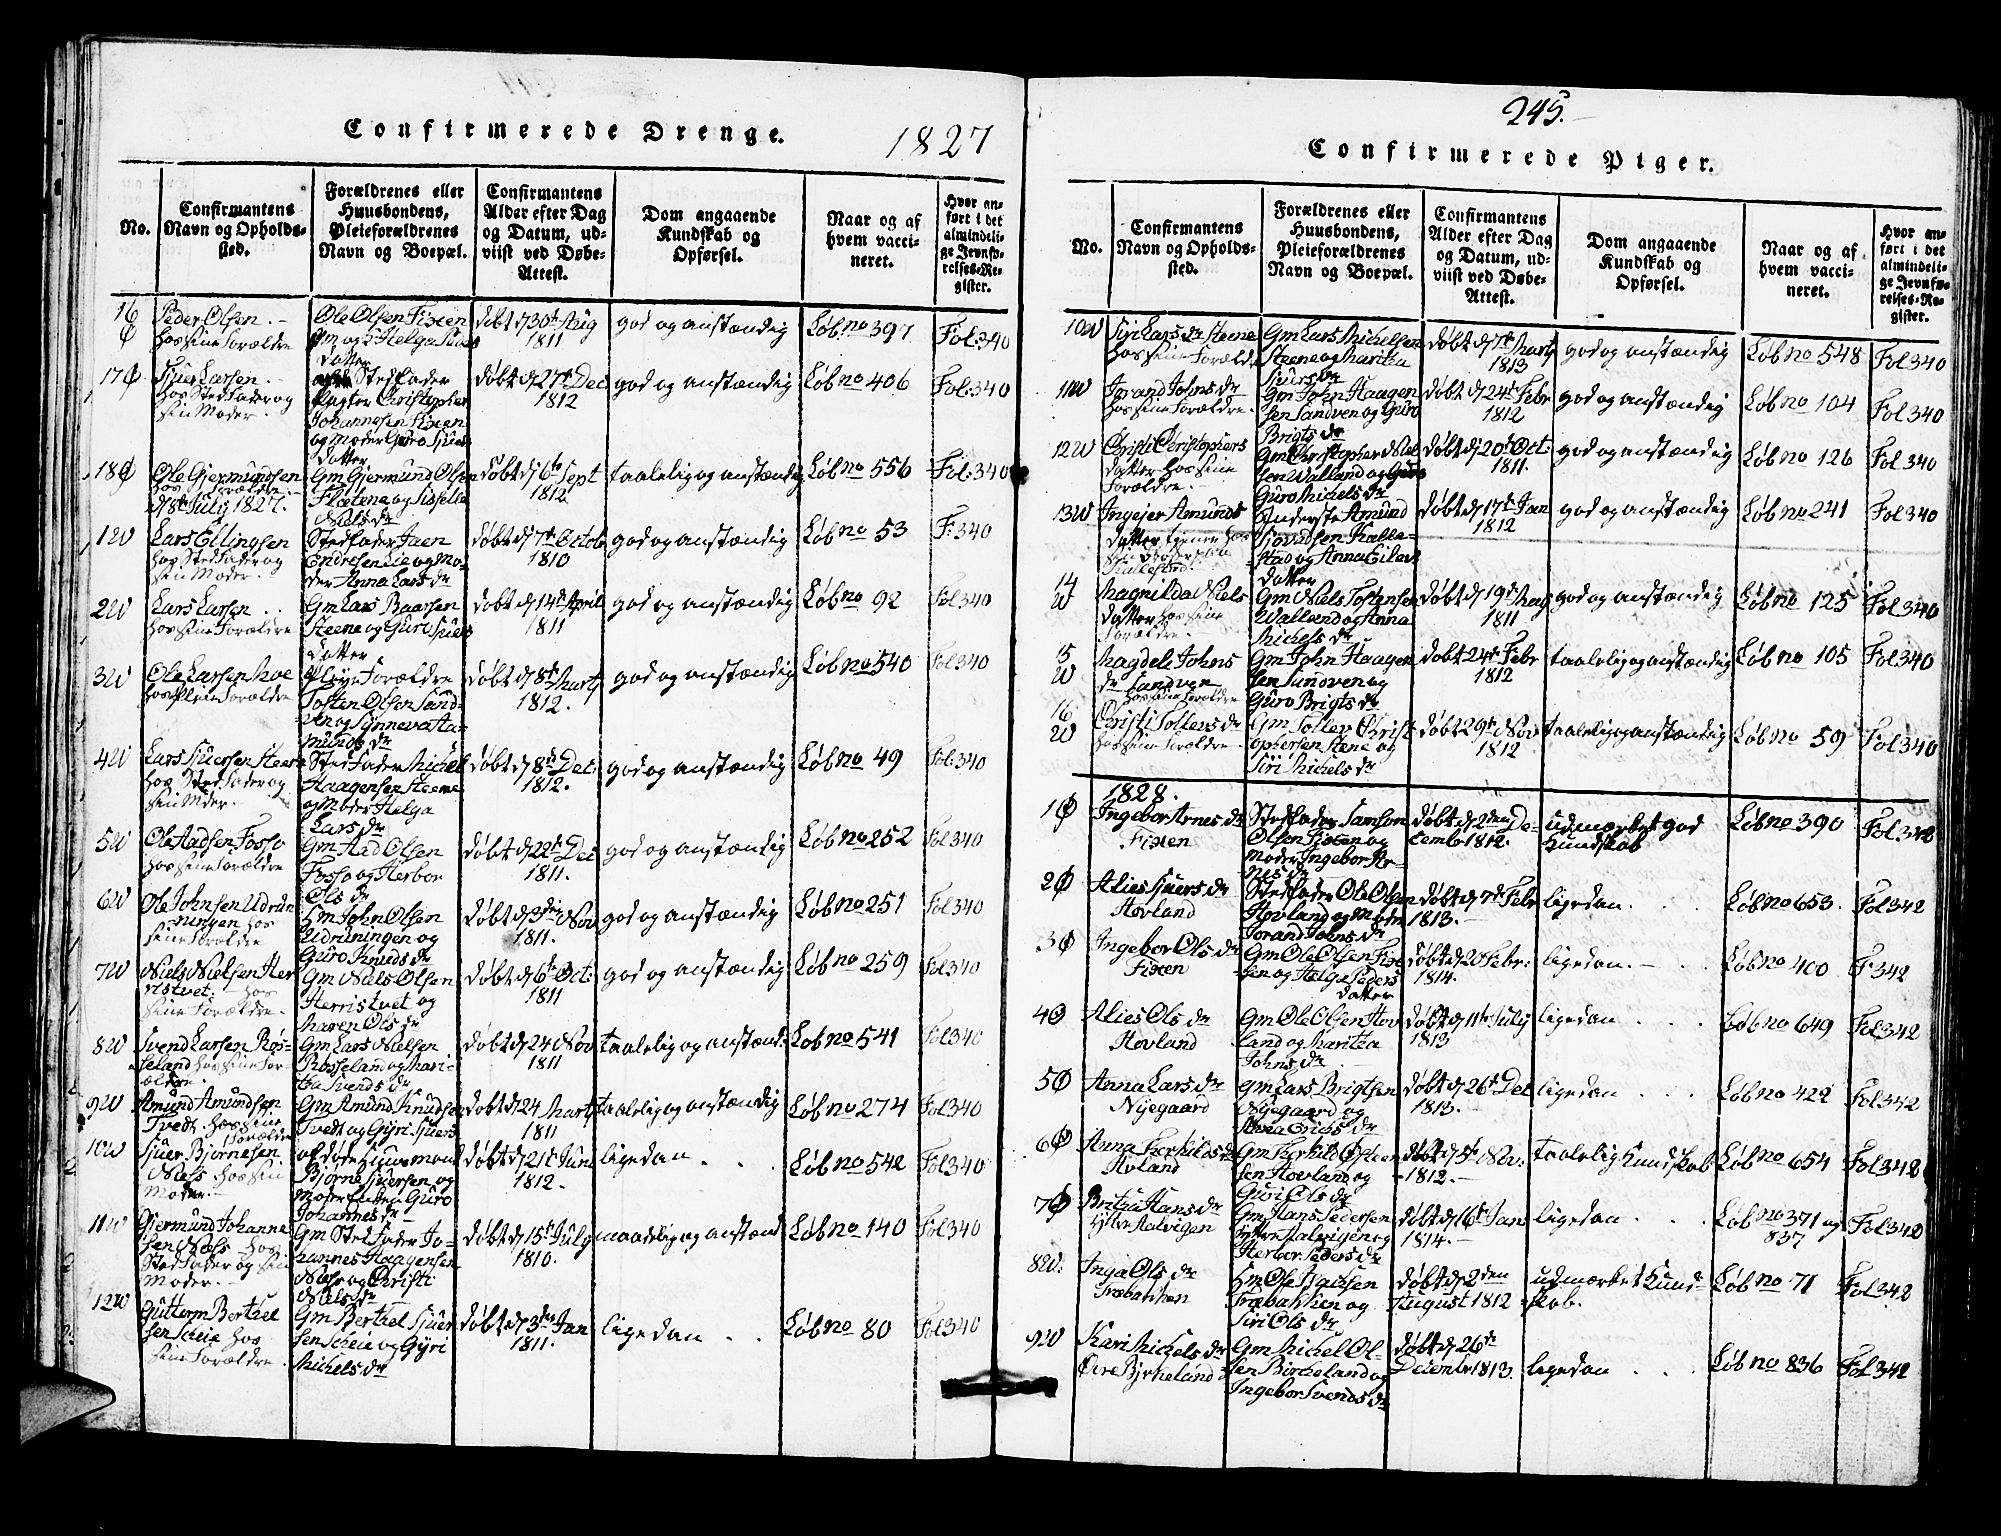 Confirmerede Drenge.
1827
No.
Confirmantens
Navn og Opholds-
sted.
Forældrenes eller
Huusbondens,
Pleieforældrenes
Navn og Boepæl.
Confirmantens
Alder efter Dag
og Datum, ud-
viist ved Døbe-
Attest.
Dom angaaende
Kundskab og
Opførsel.
Naar og af
hvem vacci-
neret.
Hvor an-
ført i det
almindeli-
ge Jevnfø-
relses-Re-
gister.
16 Ø
Peder Olsen
hos sine Forældre
Ole Olsen Fixen
Gm og Helga Peders
datter
døbt d 30t Aug
1811
god og anstændig
Løb no 397
Fol: 340
17 Ø
Sjur Larsen
hos Stedfader og
sin Moder
Stedfader
Christopher
Johannesen Fixen
og Moder Guro Sjurs
datter
døbt d 27t Dec
1812
god og anstændig
Løb no 406
Fol: 340
18 Ø
Ole Gjermundsen
hos Forældre
d 8t July 1827.
Gm Gjermund Olsen
Flatene og Sissella
Niels dr
døbt d 6te Sept
1812
taalelig og anstændig
Løb no 556
Fol: 340
1 W
Lars Ellingsen
hos Stedfader og
sin Moder.
Stedfader Jaen
Endresen Lie og Mo-
der Anna Lars dr
døbt d 7t Octob
1810
god og anstændig
Løb no 53
F: 340
2 W
Lars Larsen
hos sine Forældre
Gm Lars Baarsen
Steene og Guro Sjurs
datter
døbt d 14t April
1811
god og anstændig
Løb no 92
Fol 340
3 W
Ole Larsen Moe
hos Pleie Forældre
Pleye Forældre
Tosten Olsen Sand-
ven og Synneva Aa-
munds dr
døbt d 8t Marts
1812.
god og anstændig
Løb no 540
Fol: 340
4 W
Lars Sjursen Steene
hos Stedfader og
sin Moder
Stedfader Michel
Haagensen Steene
og Moder Helga
Lars dr
døbt d 8t Dec
1812.
god og anstændig
Løb no 49
Fol: 340
5 W
Ole Aadsen Fosso
hos sine Forældre
Gm Aad Olsen
Fosso og Herbor
Ols dr
døbt d 22t Dec
1811.
god og anstændig
Løb no 252
Fol 340
6 W
Ole Johnsen Udrun
ningen hos
sine Forældre
Hm John Olsen
Udruningen og
Guro Knuds dr
døbt d 3die Nov
1811.
god og anstændig
Løb no 251
Fol 340
7 W
Niels Nielsen Her
ristvet. hos
sine Forældre.
Gm Niels Olsen
Herristvet og
Maren Ols dr
døbt d 6t Oct:
1811
god og anstændig
Løb no 259
Fol 340
8 W
Svend Larsen Ros-
seland hos sine For
ældre.
Gm Lars Nielsen
Rosseland og Mari-
tza Svends dr
døbt d 24 Nov
1811
taalelig og anstænd.
Løb no 541
Fol 340
9 W
Amund Amundsen
Tvedt hos sine
Forældre
Gm Amund Knudsen
Tvedt og Gyri Sjurs
døbt d 24 Marts
1811
taalelig og anstændig
Løb no 274
Fol 340
10 W
Sjuer Bjørnesen
Næss hos sin
Moder.
afdøde Huusmand
Bjørne Sjursen og
Moder Enken Guro
Johannes dr
døbt d 21t Juni
1812.
ligedan
Løb no 542
Fol 340
11 W
Gjermund Johanne
sen Næss hos
Stedfader og sin
Moder.
Gm Stedfader Jo-
hannes Haagensen
Næss og Christi
Niels dr
døbt d 15t July
1810.
maadelig og anstænd
Løb no 140
Fol 340
12 W
Gutterm Berthel
sen Scheie hos
sine Forældre.
Gm Berthel Sjuer
sen Scheie og Gyri
Michels dr
døbt d 3die Jan
1811.
ligedan
Løb no 80
Fol 340
245.
Confirmerede Piger.
No.
Confirmantens
Navn og Opholds-
sted.
Forældrenes eller
Huusbondens,
Pleieforældrenes
Navn og Boepæl.
Confirmantens
Alder efter Dag
og Datum, ud-
viist ved Døbe-
Attest.
Dom angaaende
Kundskab og
Opførsel.
Naar og af
hvem vacci-
neret.
Hvor an-
ført i det
almindeli-
ge Jevnfø-
relses-Re-
gister.
10 W
Siri Lars dr Steene
hos sine Forældre
Gm Lars Michelsen
Steene og Maritza
Sjurs dr
døbt d 7t Marts
1813
god og anstændig
Løb no 548
Fol 340
11 W
Jorand Johns dr
hos sine Forældre.
Gm John Haagen
sen Sandven og Guro
Brigts dr
døbt d 24t Febr
1812
god og anstændig
Løb no 104
Fol 340
12 W
Christi Christophers
datter hos sine
Forældre.
Gm Christopher Niel
sen Walland og
Guro Michels dr
døbt d 20t Oct
1811.
god og anstændig
Løb no 126
Fol 340
13 W
Ingejer Amunds
datter tjener hos
Inderste Amund
Sjovudsen Kalle-
stad og Anna Eilevs
datter
døbt d 17t Jan
1812
god og anstændig
Løb no 241
Fol 340
14 W
Magnilda Niels
datter hos sine
Forældre.
Gm Niels Tostensen
Walland og Anna
Michels dr
døbt d 19t May
1811
god og anstændig
Løb no 125
Fol 340
15 W
Magdeli Johns
dr Sandven
hos sine Forældre
Gm John Haagen
sen Sandven og
Guro Brigts dr
døbt 24t Febr
1812
taalelig og anstændig
Løb no 105
Fol 340
16 W
Christi Tollers dr
hos sine Forældre
Gm Toller Christ
ophersen Stene og
Siri Michels dr
døbt 29t Nov
1812
taalelig og anstændig
Løb no 59
Fol 340
1828.
1 Ø
Ingebor Arnes dr
Fixen
Stedfader Samson
Olsen Fixen og
Moder Ingebor Ar-
nes dr
døbt d 2den De-
cembr 1812.
udmærket god
Kundskab
Løb no 390
Fol. 342
2 Ø
Alies Sjuers dr
Hovland
Stedfader Ole Olsen
Hovland og Moder
Jorand Johns dr
døbt d 7t Febr
1813.
ligedan
Løb no 653.
Fol 342
3 Ø
Ingebor Ols dr
Fixen
Gm Ole Olsen Fix
sen og Helga Peders
datter
døbt d 20 Febr:
1814.
ligedan
Løb no 400
F 342
4 Ø
Alies Ols dr
Hovland
Gm Ole Olsen Hov
land og Maritza
Johns dr
døbt d 11t July
1813
ligedan
Løb no 649
Fol 342
5 Ø
Anna Lars dr
Nyegaard
Gm Lars Brigtsen
Nyegaard og
Anna Erichs dr
døbt d 26t Dec
1813.
ligedan
Løb no 422
Fol 342
6 Ø
Anna Torkilds dr
Hovland
Gm Torkild
sen Hovland og
Guri Ols dr
døbt d 5t Nov:
1812.
taalelig Kundskab
Løb no 654
Fol 342
7 Ø
Brita Hans dr
Yttre Aalvigen
Gm Hans Pedersen
Yttre Aalvigen og
Herbor Peders dr
døbt d 16t Jan
1814.
ligedan
Løb no 371 og
837
Fol 342
8 W.
Inga Ols dr
Træbakken
Hm Ole Isacsen
Træbakken og
Siri Ols dr
døbt d 2den
August 1812
udmærket Kund-
skab.
Løb no 71
Fol 342
9 W
Kari Michels dr
Øvre Bjrkeland
Gm Michel Ol-
sen Birkeland og
Ingebor Svends dr
døbt d 26t
Decembr 1813.
ligedan
Løb no 836
Fol 342